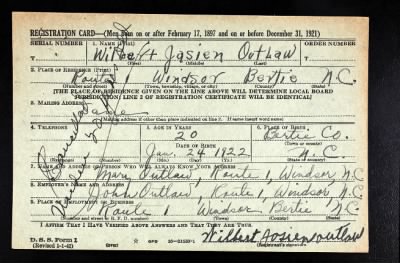 REGISTRATION CARD—(Men born on or after February 17, 1897 and on or before December 31, 1921)
SERIAL NUMBER 1. NAME (Print) ORDER NUMBER
Wilbert Josien Outlaw
(First) (Middle) (Last)
2. PLACE OF RESIDENCE (Print)
Route 1 Windsor Bertie N.C.
(Number and street) (Town, township, village, or city) (County) (State)
[THE PLACE OF RESIDENCE GIVEN ON THE LINE ABOVE WILL DETERMINE LOCAL BOARD
JURISDICTION; LINE 2 OF REGISTRATION CERTIFICATE WILL BE IDENTICAL]
3. MAILING ADDRESS
Same
[Mailing address if other than place indicated on line 2. If same insert word same]
4. TELEPHONE 5. AGE IN YEARS 6. PLACE OF BIRTH
20 Bertie Co.
DATE OF BIRTH (Town or county)
Jan. 24 1922 N.C.
(Mo.) (Day) (Yr.) (State or country)
7. NAME AND ADDRESS OF PERSON WHO WILL ALWAYS KNOW YOUR ADDRESS
Mary Outlaw, Route 1, Windsor, N.C.
8. EMPLOYER'S NAME AND ADDRESS
John Outlaw, Route 1, Windsor, N.C.
9. PLACE OF EMPLOYMENT OR BUSINESS
Route 1 Windsor Bertie N.C.
(Number and street or R. F. D. number) (Town) (County) (State)
I AFFIRM THAT I HAVE VERIFIED ABOVE ANSWERS AND THAT THEY ARE TRUE.
D. S. S. Form 1
(Revised 1-1-42) GPO 16—21630-1
Wilbert Josien outlaw
(Registrant's signature)